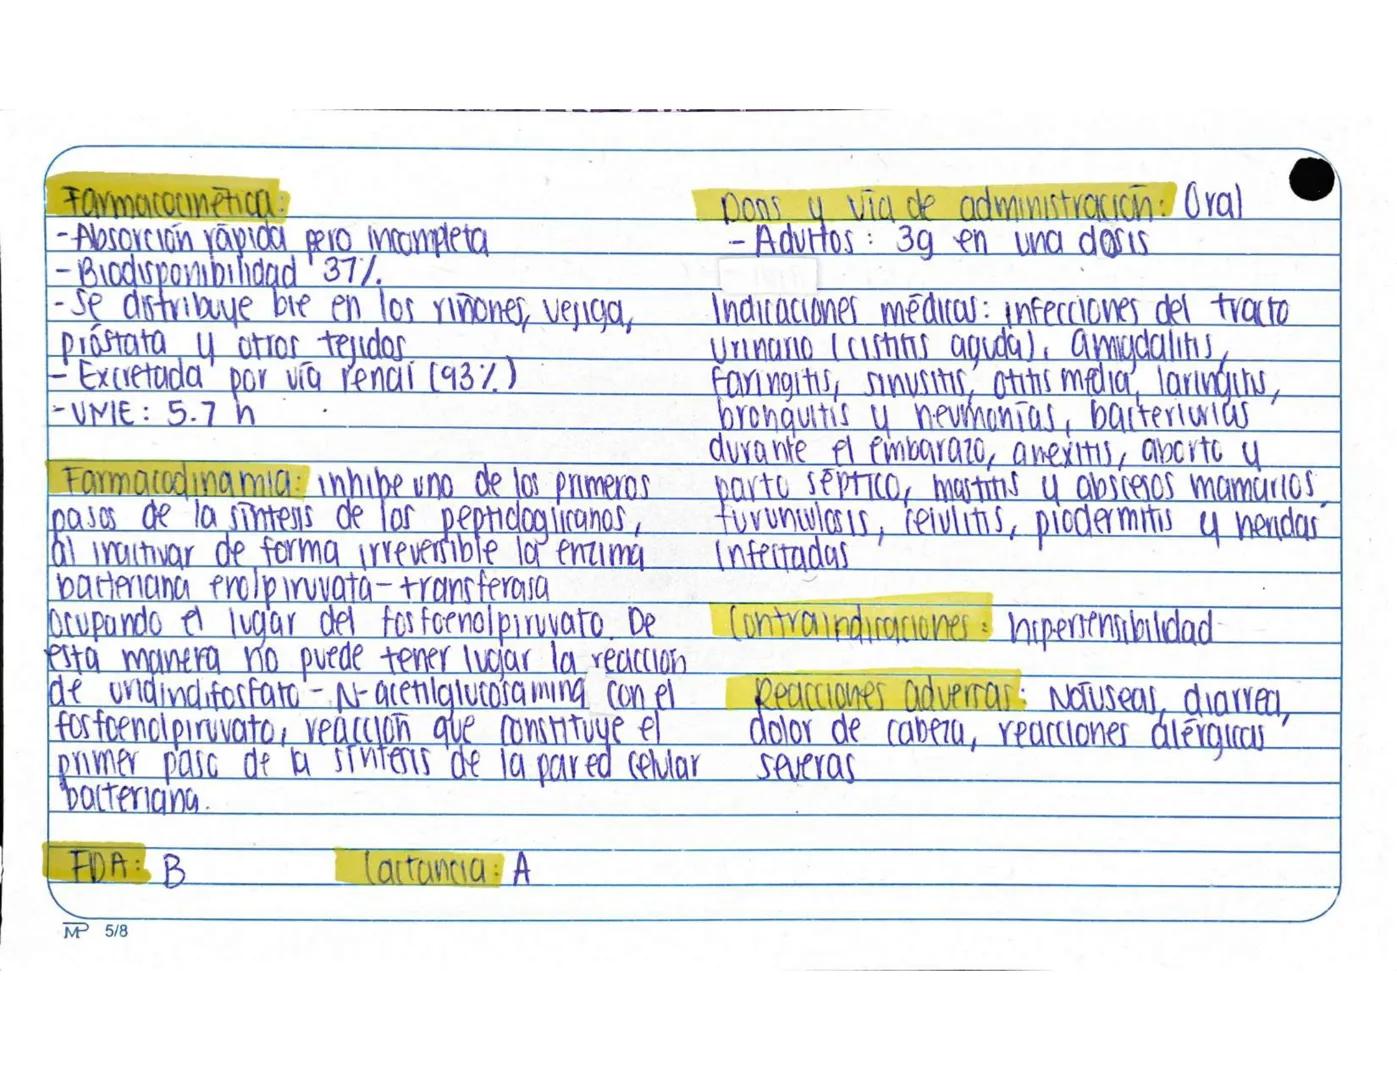 Farmacocinética:
-Absorción rápida pero incompleta
-Biodisponibilidad 37%.
-Se distribuye bie en los riñones, vejiga,
próstata y otros tejidos
- Excretada por vía renal (93%)
-VME: 5.7 h
Farmacodinamia: inhibe uno de los primeros
pasos de la síntesis de los peptidoglicanos,
al inactivar de forma irreversible la enzima
bacteriana enolpiruvato-transferasa
ocupando el lugar del fosfoenolpiruvato. De
esta manera no puede tener lugar la reacción
de uridindifosfato-N-acetilglucosamina con el
fosfoenolpiruvato, reacción que constituye el
primer paso de la síntesis de la pared celular
bacteriana.
FDA: B
Lactancia: A
MP 5/8
Dosis y vía de administración: Oral
- Adultos: 3g en una dosis
Indicaciones médicas: infecciones del tracto
urinario (cistitis aguda), amigdalitis,
faringitis, sinusitis, otitis media, laringitis,
bronquitis y neumonías, bacteriurias
durante el embarazo, anexitis, aborto y
parto séptico, mastitis y abscesos mamarios,
furunculosis, celulitis, piodermitis y heridas
infectadas
Contraindicaciones: hipersensibilidad
Reacciones adversas: Náuseas, diarrea,
dolor de cabeza, reacciones alérgicas
severas